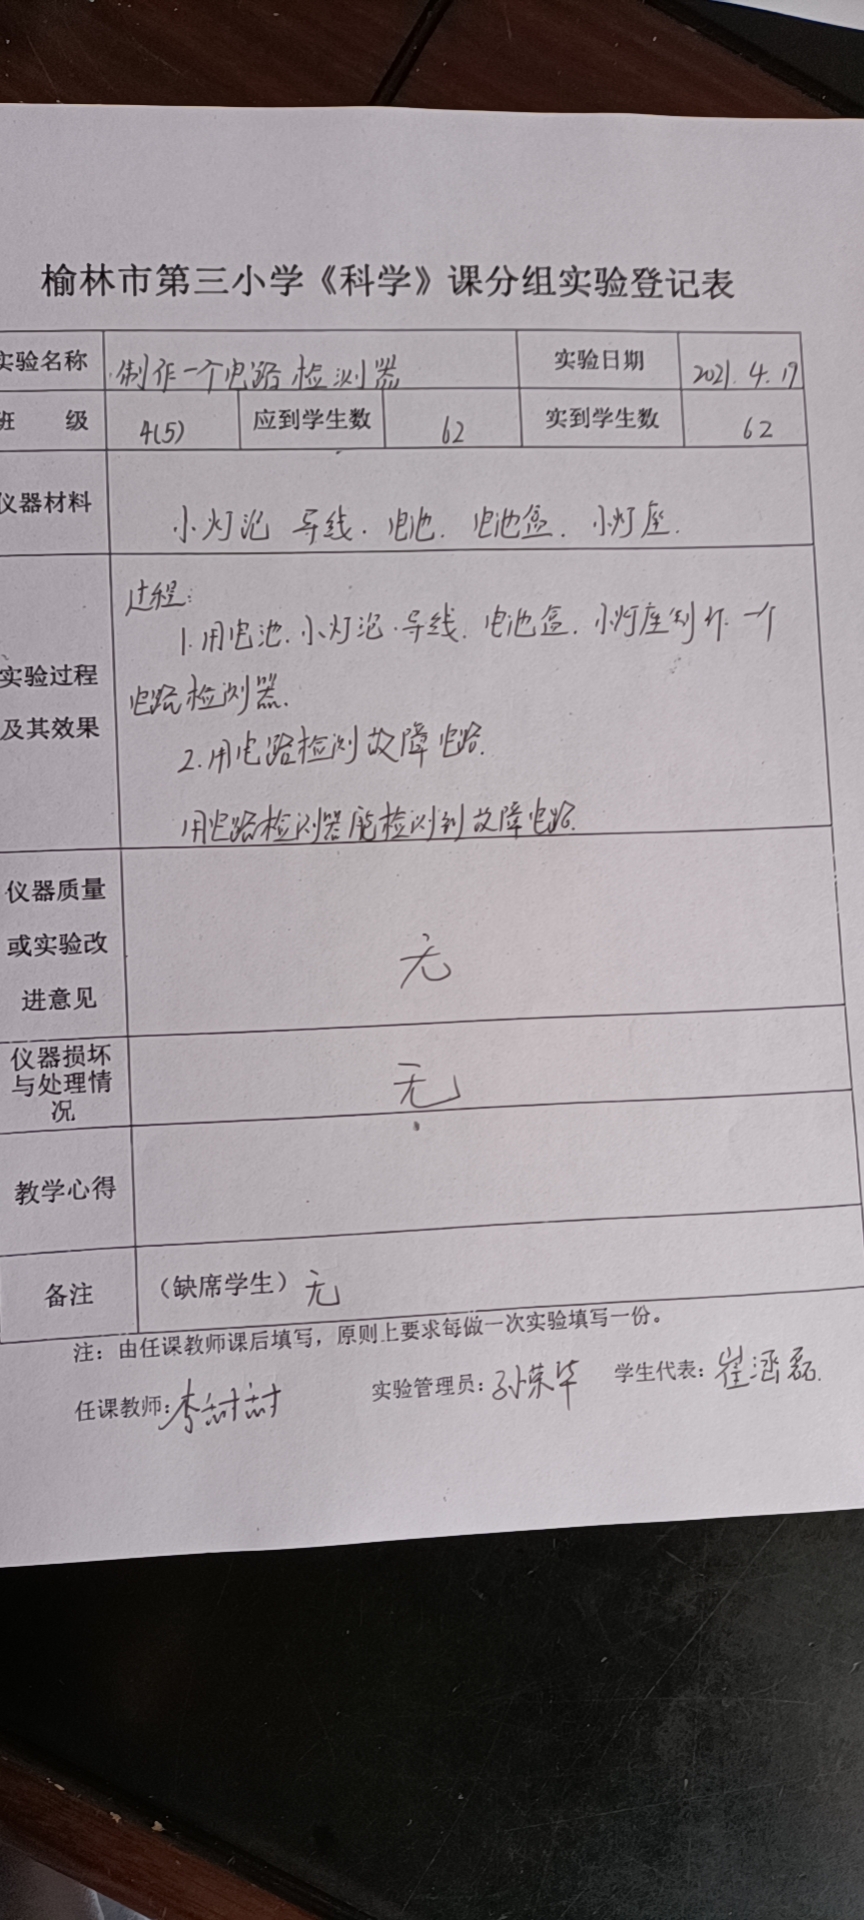 榆林市第三小学《科学》课分组实验登记表
实验名称 制作一个电路检测器 实验日期 2021.4.19
班 级 4(5) 应到学生数 62 实到学生数 62
仪器材料 小灯泡 导线. 电池. 电池盒. 小灯座.
过程:
1.用电池.小灯泡.导线.电池盒.小灯座制作一个
实验过程 电路检测器.
及其效果 2.用电路检测故障电路.
用电路检测器能检测到故障电路.
仪器质量
或实验改 无
进意见
仪器损坏
与处理情 无
况
教学心得
备注 (缺席学生) 无
注:由任课教师课后填写,原则上要求每做一次实验填写一份。
任课教师:李甜甜 实验管理员:孙荣华 学生代表:崔涵磊.